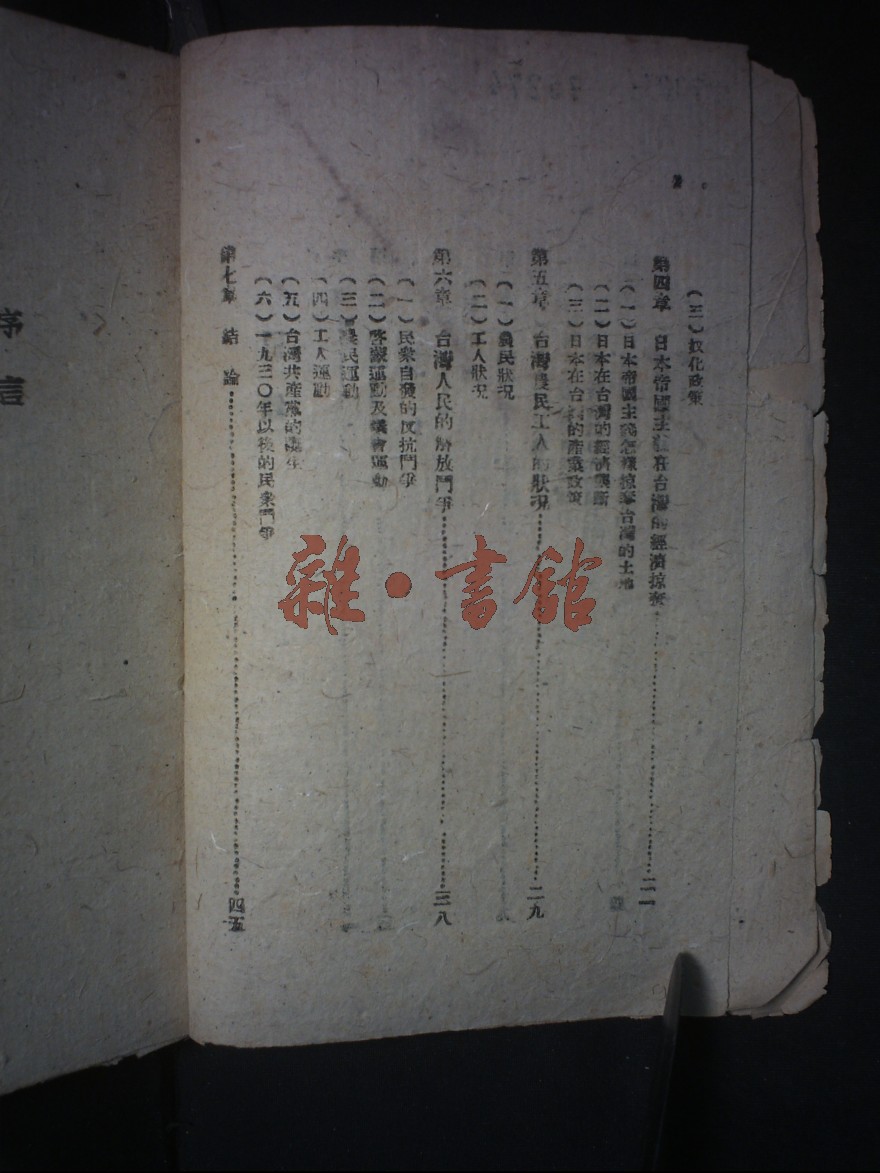 （三）奴化政策
第四章　日本帝國主義在台灣的經濟掠奪 二一
（一）日本帝國主義怎樣掠奪台灣的土地
（二）日本在台灣的經濟壟斷
（三）日本在台灣的產業政策
第五章　台灣農民工人的狀况 二九
（一）農民狀况
（二）工人狀况
第六章　台灣人民的解放鬥爭 三八
（一）民衆自發的反抗鬥爭
（二）啓蒙運動及議會運動
（三）農民運動
（四）工人運動
（五）台灣共產黨的產生
（六）一九三〇年以後的民衆鬥爭
第七章　結　論 四五
序言
雜·書館